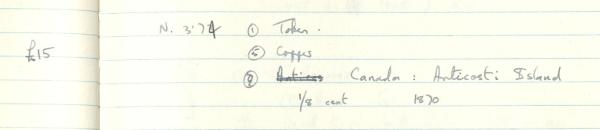 N. 3.74 ① Token.
£15 ⑤ Copper
⑨ Canada : Anticosti Island
1/8 cent 1870